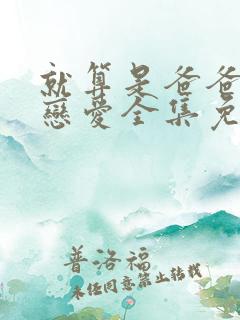 就算是爸爸
戀愛全集免
普洛福
未經同意禁止轉載